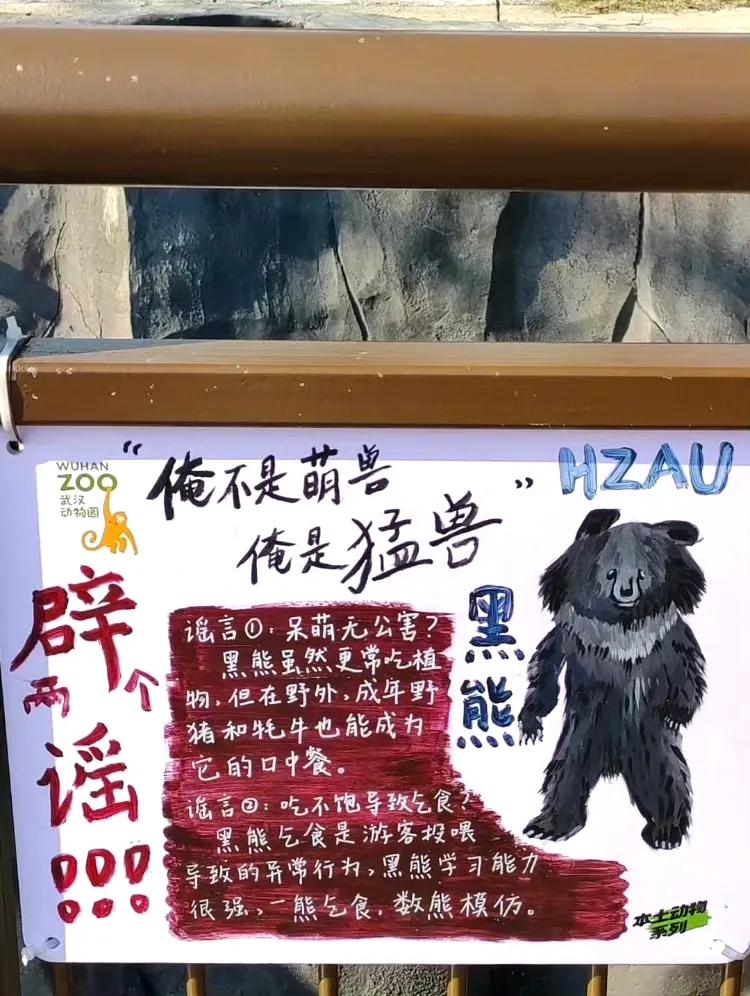 WUHAN
ZOO
武汉
动物园
“俺不是萌兽
俺是猛兽”
HZAU
辟
两个
谣
!!!
谣言①:呆萌无公害?
黑熊虽然更常吃植
物,但在野外,成年野
猪和牦牛也能成为
它的口中餐。
谣言②:吃不饱导致乞食?
黑熊乞食是游客投喂
导致的异常行为,黑熊学习能力
很强,一熊乞食,数熊模仿。
黑熊
本土动物
系列